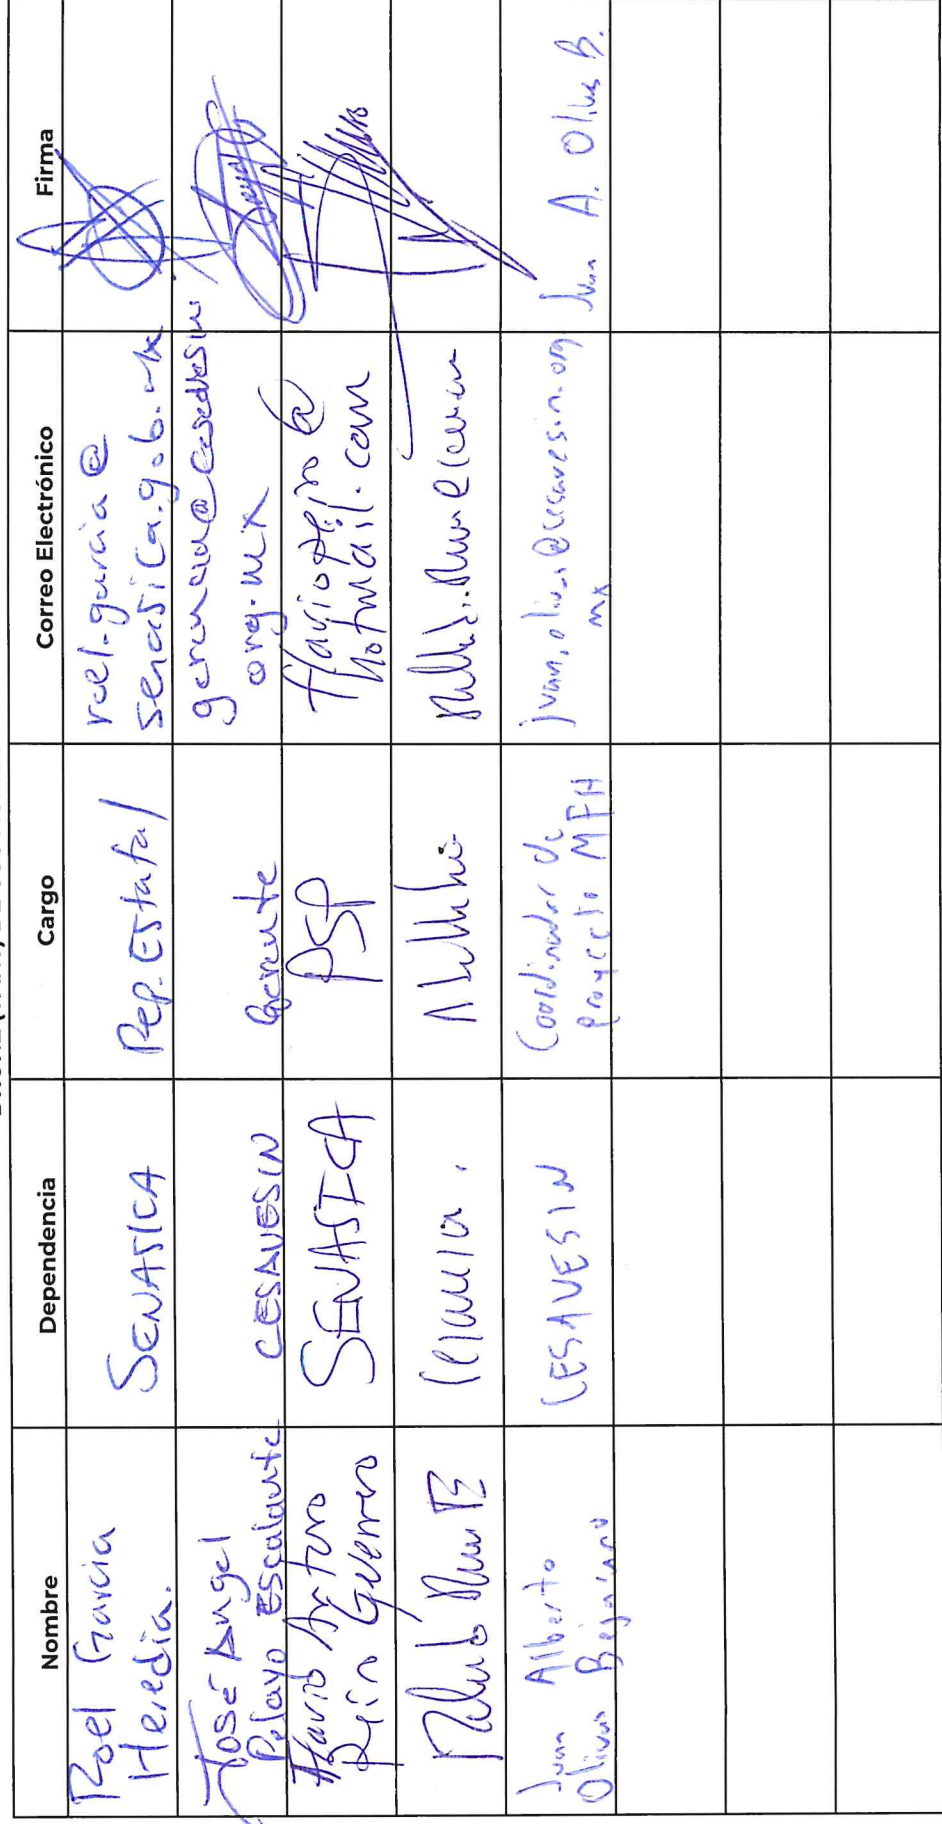 Nombre Dependencia Cargo Correo Electrónico Firma
Roel Garcia
Heredia.
SENASICA
Rep. Estatal
roel.garcia@
senasica.gob.mx
José Angel
Pelayo Escalante
CESAVESIN
Gerente
gerencia@cesavesin
org.mx
Flavio Arturo
Guerrero
SENASICA
PSP
hotmail.com
Juan Alberto
Olivas Bejarano
CESAVESIN
Coordinador de
proyecto MFH
juan.olivas@cesavesin.org
mx
Juan A. Olivas B.